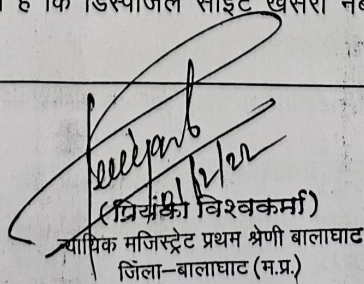 है कि डिस्पोजल साइट खसरा नं
(प्रियंका विश्वकर्मा)
न्यायिक मजिस्ट्रेट प्रथम श्रेणी बालाघाट
जिला–बालाघाट (म.प्र.)